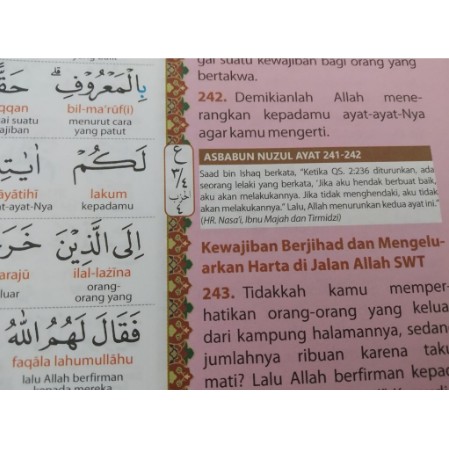 yang
بِالْمَعْرُوفِۗ
bil-ma'rūf(i)
menurut cara
yang patut
لَكُمْ
lakum
kepadamu
اٰيٰتِهٖ
āyātihī
ayat-ayat-Nya
اِلَى الَّذِيْنَ
ilal-lażīna
orang-
orang yang
فَقَالَ لَهُمُ اللّٰهُ
faqāla lahumullāhu
lalu Allah berfirman
kepada mereka
ع
٣/٤
الحزب
٤
gai suatu kewajiban bagi orang yang
bertakwa.
242. Demikianlah Allah mene-
rangkan kepadamu ayat-ayat-Nya
agar kamu mengerti.
ASBABUN NUZUL AYAT 241-242
Saad bin Ishaq berkata, "Ketika QS. 2:236 diturunkan, ada
seorang lelaki yang berkata, 'Jika aku hendak berbuat baik,
aku akan melakukannya. Jika tidak menghendaki, aku tidak
akan melakukannya.' Lalu, Allah menurunkan kedua ayat ini."
(HR. Nasa'i, Ibnu Majah dan Tirmidzi)
Kewajiban Berjihad dan Mengelu-
arkan Harta di Jalan Allah SWT
243. Tidakkah kamu memper-
hatikan orang-orang yang kelua
dari kampung halamannya, sedan
jumlahnya ribuan karena taku
mati? Lalu Allah berfirman kepad